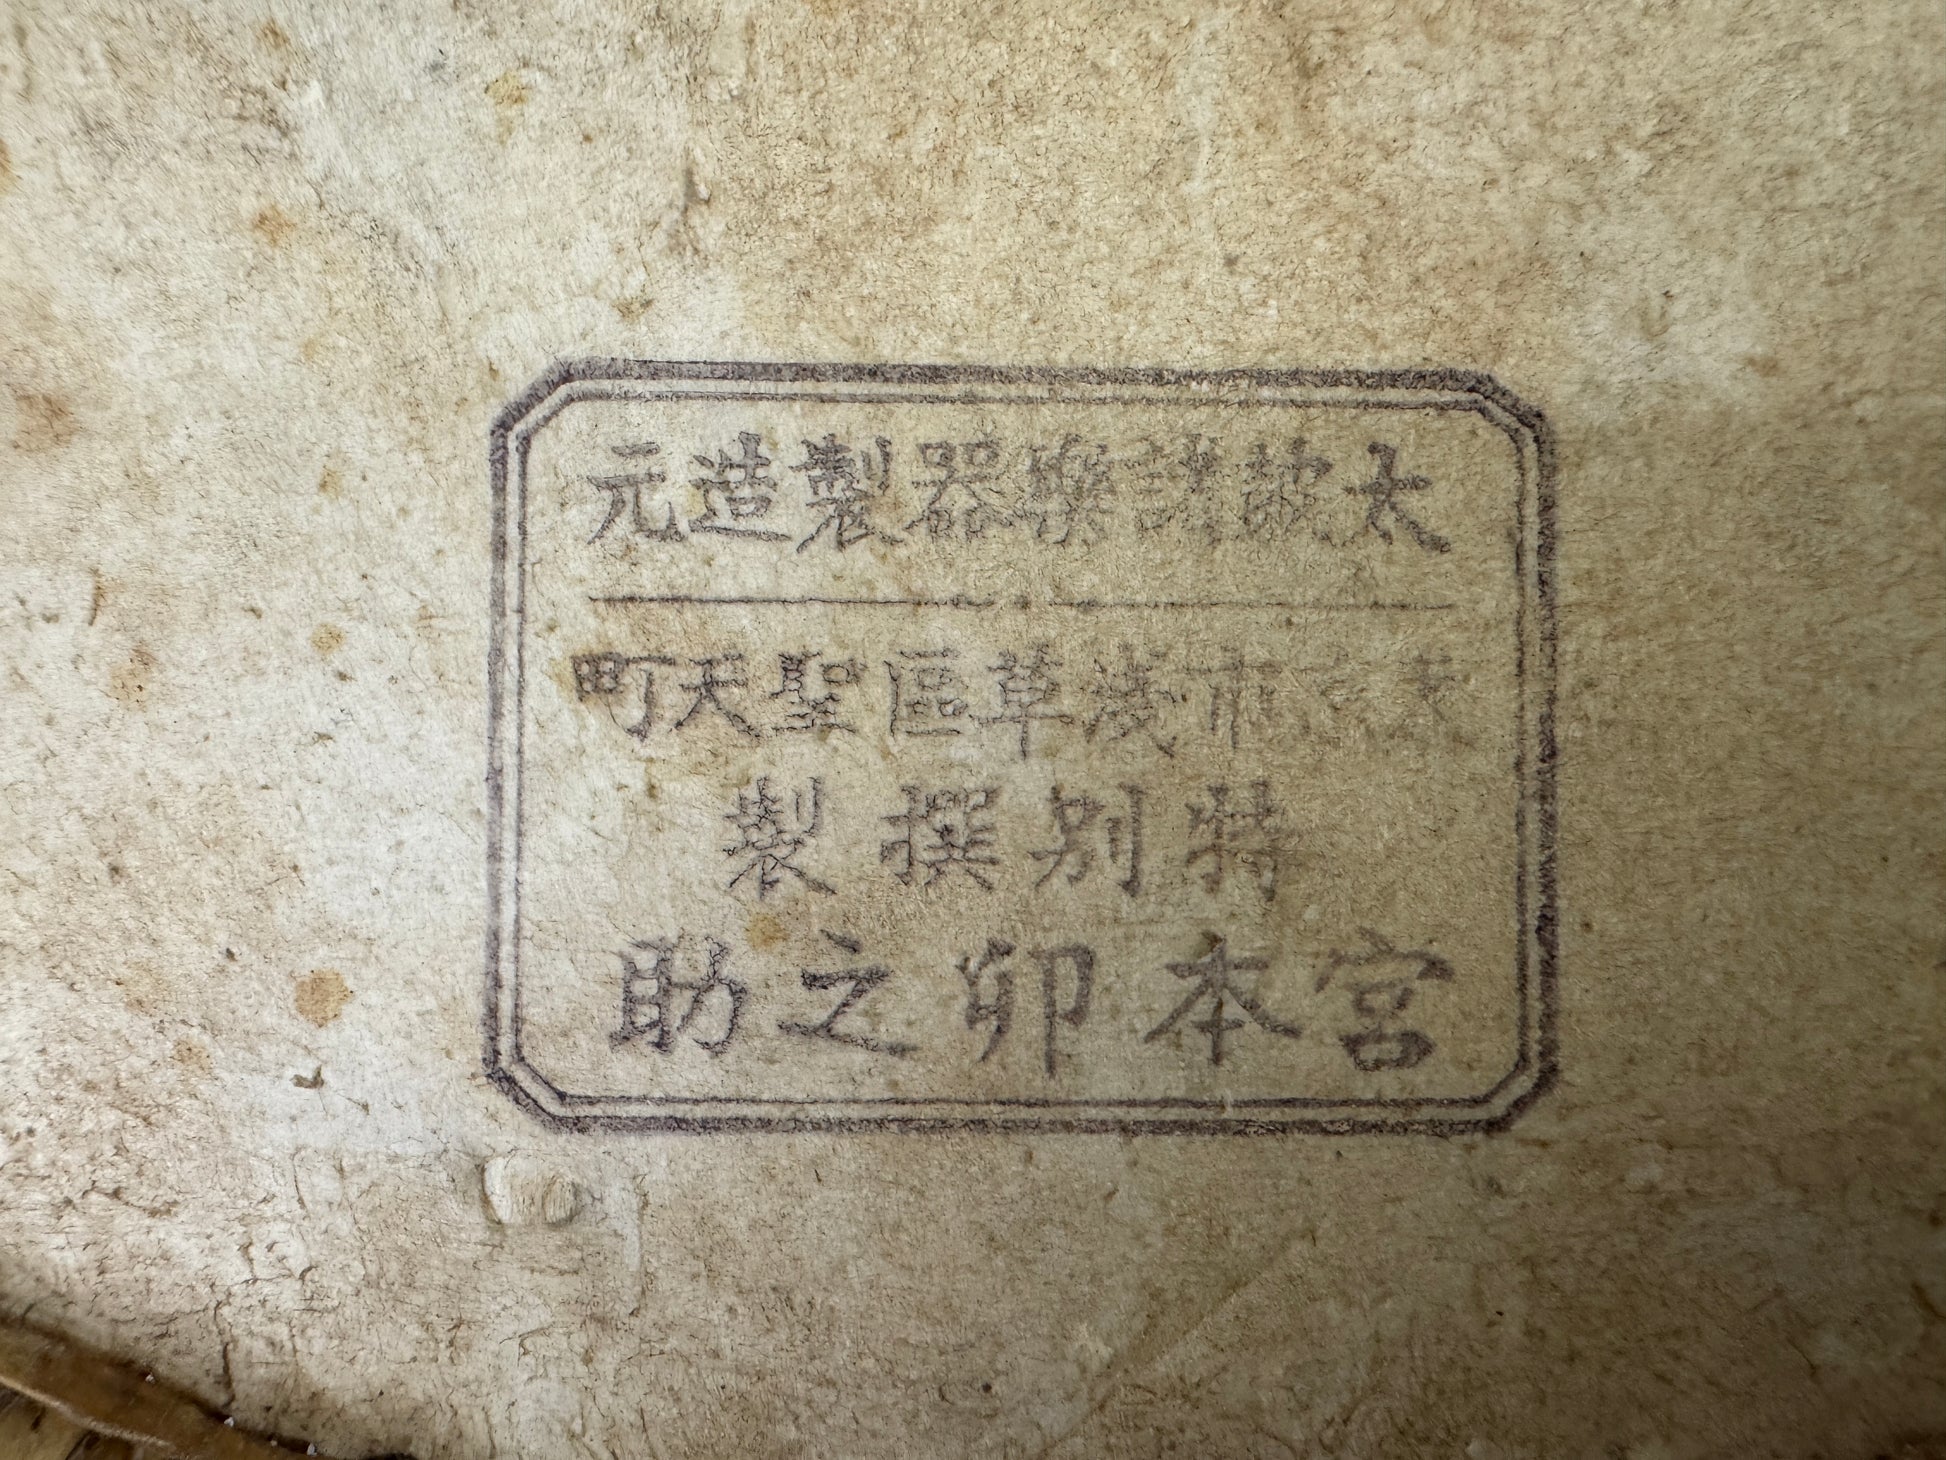 太皷諸樂器製造元
東京市淺草區聖天町
特別撰製
宮本卯之助